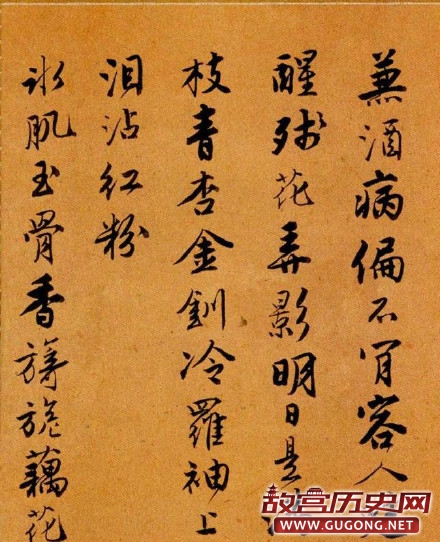 兼酒病偏不肎容人
醒殘花弄影明日是
枝青杏金釧冷羅袖上
泪沾紅粉
冰肌玉骨香旖旎藕花
故宫历史网
WWW.GUGONG.NET